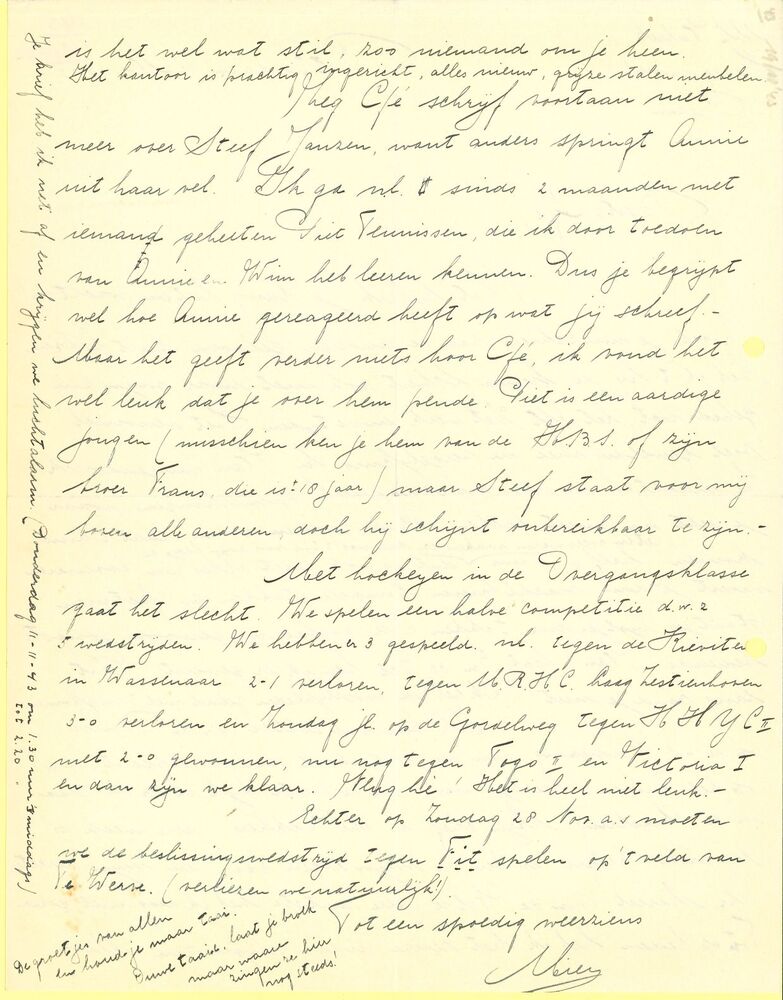 is het wel wat stil, zoo niemand om je heen.
Het kantoor is prachtig ingericht, alles nieuw, grijze stalen meubelen.
Zeg Cfé schrijf voortaan niet
meer over Steef Janzen, want anders springt Annie
uit haar vel. Ik ga nl. sinds 2 maanden met
iemand geheeten Piet Teunissen, die ik door toedoen
van Annie en Wim heb leeren kennen. Dus je begrijpt
wel hoe Annie gereageerd heeft op wat jij schreef. -
Maar het geeft verder niets hoor Cfé, ik vond het
wel leuk dat je over hem pende. Piet is een aardige
jongen (misschien ken je hem van de H.B.S. of zijn
broer Frans, die is ± 18 jaar) maar Steef staat voor mij
boven alle anderen, doch hij schijnt onbereikbaar te zijn. -
Met hockeyen in de Overgangsklasse
gaat het slecht. We spelen een halve competitie d.w.z
5 wedstrijden. We hebben er 3 gespeeld. nl. tegen de Kieviten
in Wassenaar 2-1 verloren, tegen M.R.H.C. Laag Zestienhoven
3-0 verloren en Zondag jl. op de Gordelweg tegen H H Y C II
met 2-0 gewonnen, nu nog tegen Togo II en Victoria I
en dan zijn we klaar. Het is heel niet leuk. -
Echter op Zondag 28 Nov. a.s moeten
we de beslissingswedstrijd tegen Fit spelen op 't veld van
Te Werve. (verliezen we natuurlijk!).
Tot een spoedig weerziens
Mien
De groetjes van allen
en houd je maar taai.
Ouwe taaie, laat je broek
maar waaie
zingen ze hier
nog steeds!
Je brief heb ik net af en krijgen we luchtalarm (Donderdag 11-11-43 om 1.30 uur 's middags)
tot 2.20.